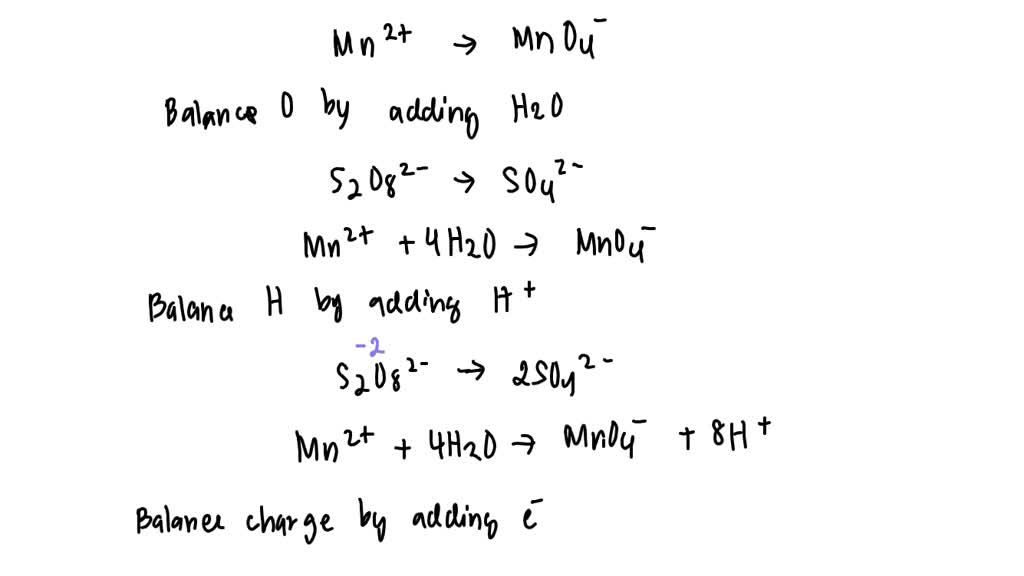 Mn²⁺ → MnO₄⁻
Balance O by adding H₂O
S₂O₈²⁻ → SO₄²⁻
Mn²⁺ + 4H₂O → MnO₄⁻
Balance H by adding H⁺
-2
S₂O₈²⁻ → 2SO₄²⁻
Mn²⁺ + 4H₂O → MnO₄⁻ + 8H⁺
Balance charge by adding e⁻